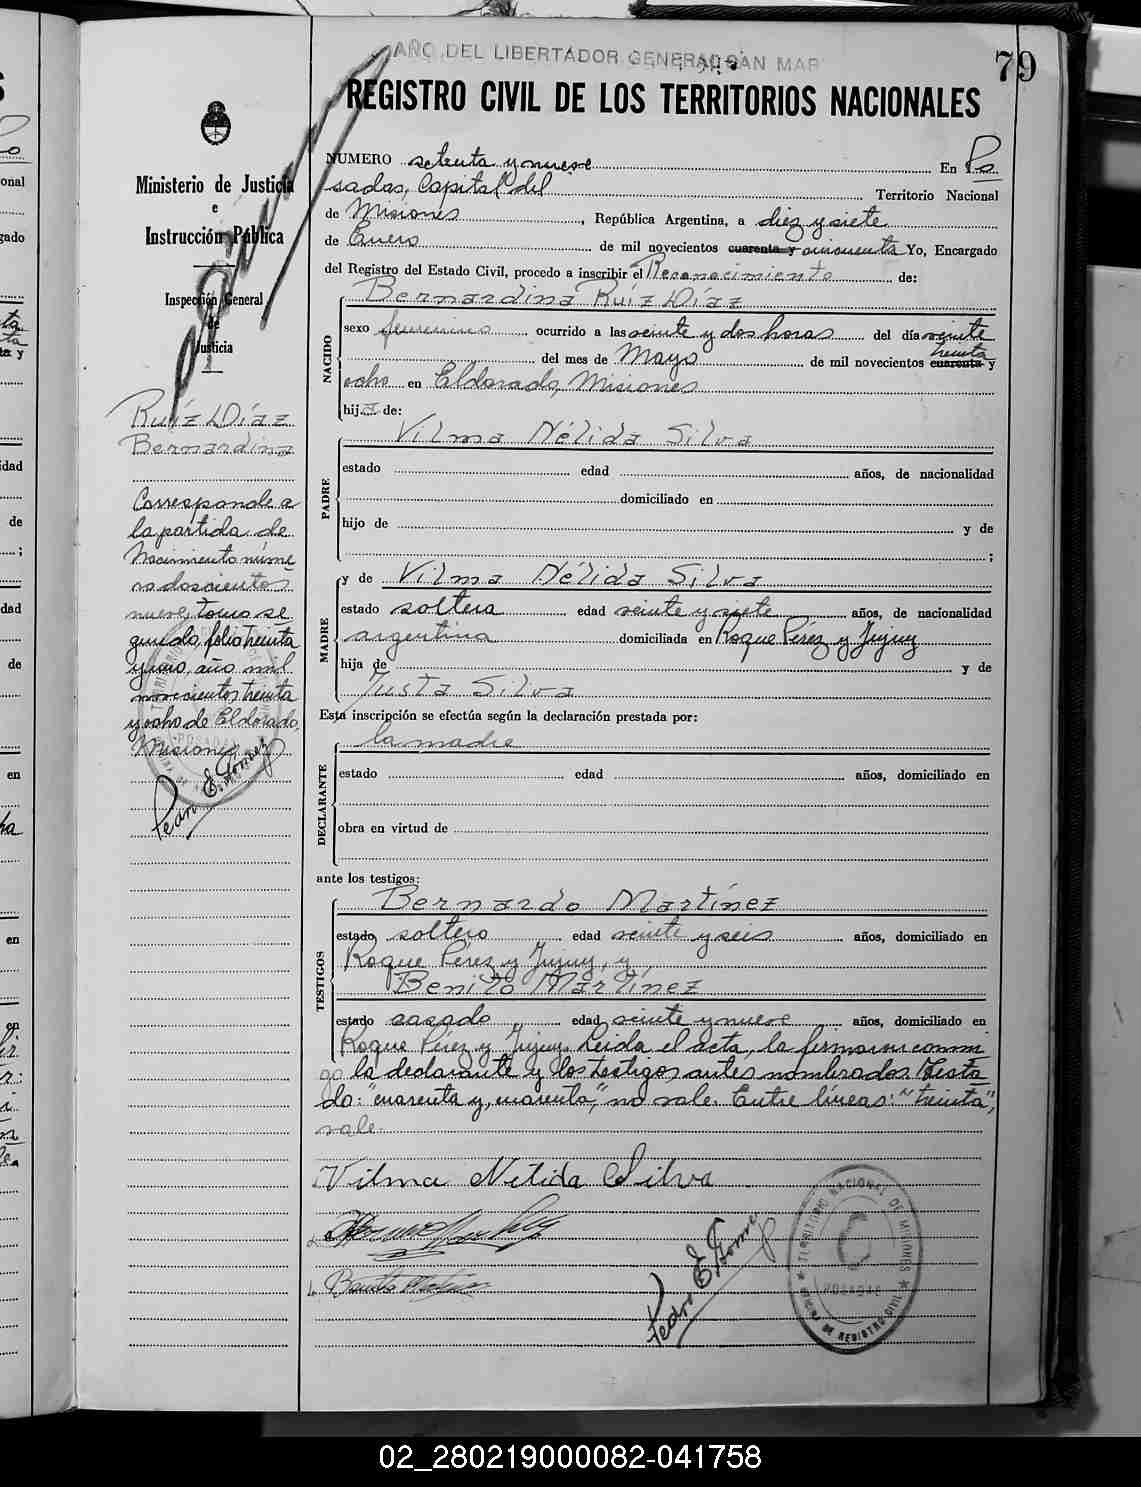 AÑO DEL LIBERTADOR GENERAL SAN MAR
79
REGISTRO CIVIL DE LOS TERRITORIOS NACIONALES
Ministerio de Justicia
e
Instrucción Pública
Inspección General
de
Justicia
Ruíz Díaz
Bernardina
Corresponde a
la partida de
Nacimiento núme
ro doscientos
nueve, tomo se
gundo, folio treinta
y uno, año mil
novecientos treinta
y ocho de Eldorado,
Misiones
Pedro E. Gómez
NUMERO setenta y nueve En Po
sadas, Capital del Territorio Nacional
de Misiones, República Argentina, a diez y siete
de Enero de mil novecientos cuarenta y cincuenta Yo, Encargado
del Registro del Estado Civil, procedo a inscribir el Reconocimiento de:
NACIDO
Bernardina Ruíz Díaz
sexo femenino ocurrido a las veinte y dos horas del día veinte
treinta
del mes de Mayo de mil novecientos cuarenta y
ocho en Eldorado, Misiones
hija de:
PADRE
Vilma Nélida Silva
estado edad años, de nacionalidad
domiciliado en
hijo de y de
;
MADRE
y de Vilma Nélida Silva
estado soltera edad veinte y siete años, de nacionalidad
argentina domiciliada en Roque Pérez y Jujuy
hija de y de
Justa Silva
Esta inscripción se efectúa según la declaración prestada por:
DECLARANTE
la madre
estado edad años, domiciliado en
obra en virtud de
ante los testigos:
TESTIGOS
Bernardo Martínez
estado soltero edad veinte y seis años, domiciliado en
Roque Pérez y Jujuy, y
Benito Martínez
estado casado edad veinte y nueve años, domiciliado en
Roque Pérez y Jujuy. Leida el acta, la firmaron conmi
go la declarante y los testigos antes nombrados. Testa
do: "cuarenta y, cuarenta", no vale. Entre líneas: "treinta",
vale.
Vilma Nelida Silva
Benito
Pedro E. Gómez
TERRITORIO NACIONAL DE MISIONES
POSADAS
OFICINA DE REGISTRO CIVIL
02_280219000082-041758